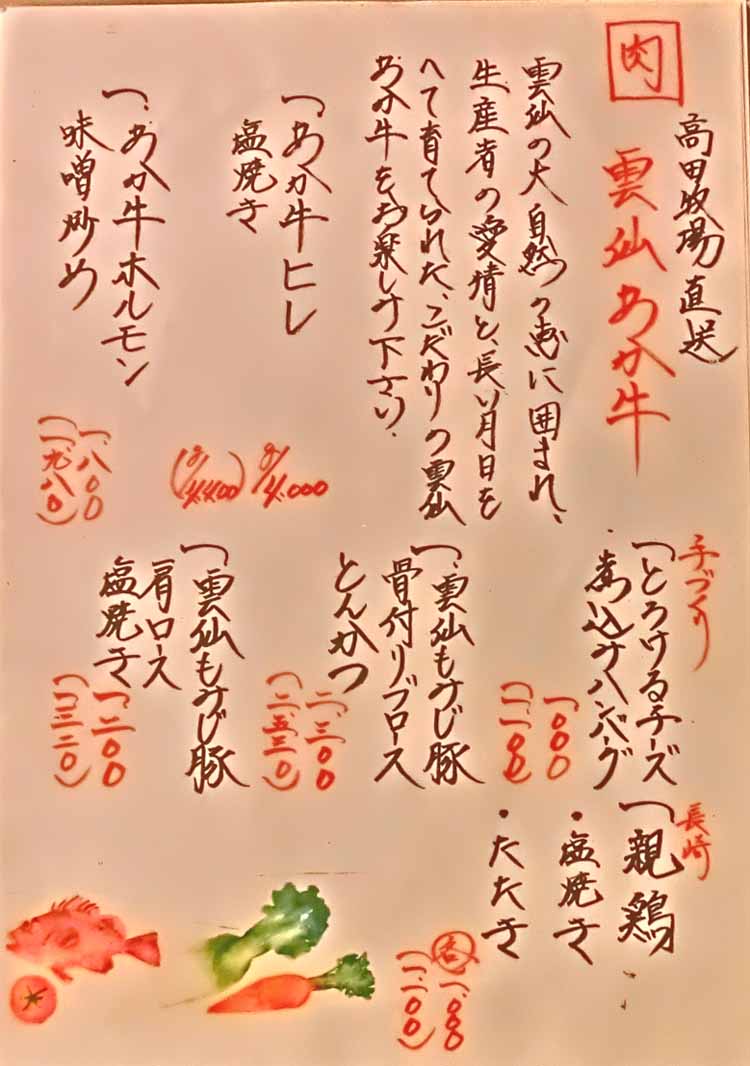 肉
高田牧場直送
雲仙あか牛
雲仙の大自然の恵に囲まれ、
生産者の愛情と、長い月日を
へて育てられた、こだわりの雲仙
あか牛をお楽しみ下さい。
一、あか牛ヒレ
塩焼き
4.000
4.400
一、あか牛ホルモン
味噌炒め
一、八〇〇
(一、九八〇)
手づくり
一、とろけるチーズ
煮込みハンバーグ
一、〇〇〇
(一、一〇〇)
一、雲仙もみじ豚
骨付リブロース
とんかつ
二、三〇〇
(二、五三〇)
一、雲仙もみじ豚
肩ロース
塩焼き
一、二〇〇
(一、三二〇)
長崎
一、親鶏
・塩焼き
・たたき
各一、〇〇〇
(一、一〇〇)